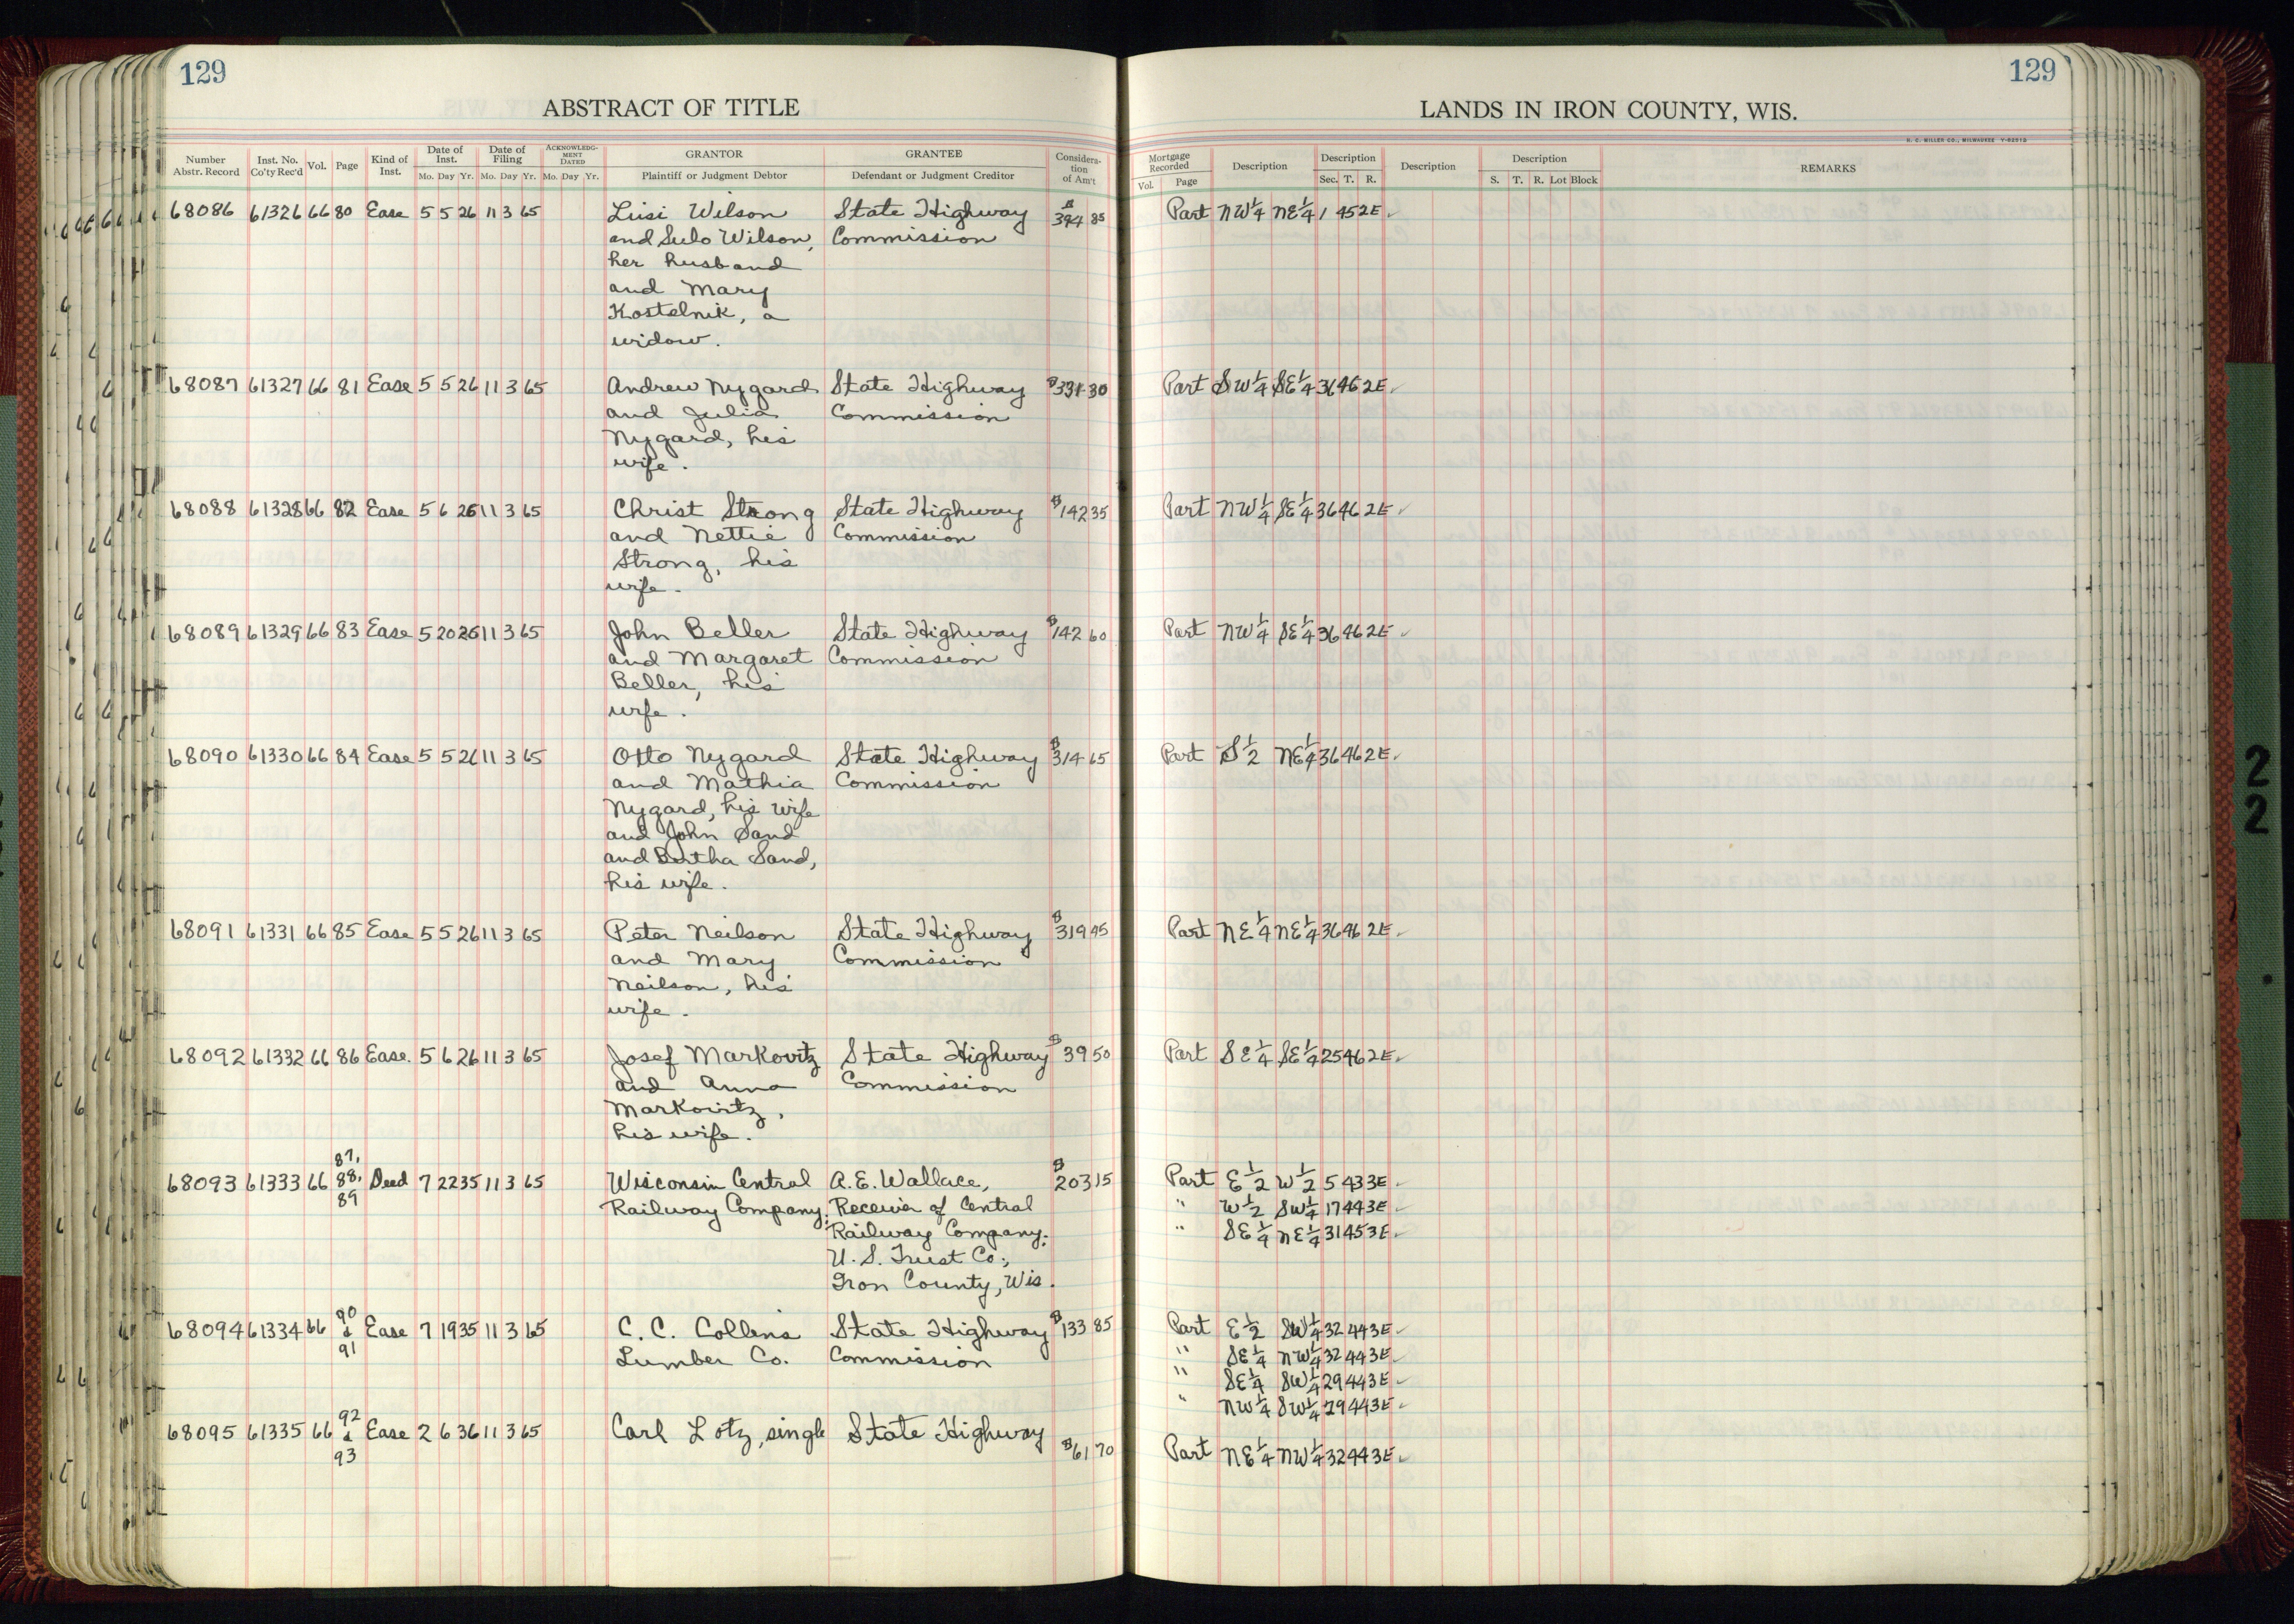 129
129
ABSTRACT OF TITLE
LANDS IN IRON COUNTY, WIS.
H. C. MILLER CO., MILWAUKEE
Number Abstr. Record Inst. No. Co'ty Rec'd Vol. Page Kind of Inst. Date of Inst. Mo. Day Yr. Date of Filing Mo. Day Yr. ACKNOWLEDGMENT DATED Mo. Day Yr. GRANTOR Plaintiff or Judgment Debtor GRANTEE Defendant or Judgment Creditor Consideration of Am't
Mortgage Recorded Vol. Page Description Description Sec. T. R. Description Description S. T. R. Lot Block REMARKS
68086 61326 66 80 Ease 5 5 26 11 3 65 Liisi Wilson State Highway $394 85 Part NW1/4 NE1/4 1 45 2E
and Sulo Wilson, Commission
her husband
and Mary
Kostelnik, a
widow.
68087 61327 66 81 Ease 5 5 26 11 3 65 Andrew Nygard State Highway $331 30 Part SW1/4 SE1/4 36 46 2E
and Julia Commission
Nygard, his
wife.
68088 61328 66 82 Ease 5 6 26 11 3 65 Christ Strong State Highway $142 35 Part NW1/4 SE1/4 36 46 2E
and Nettie Commission
Strong, his
wife.
68089 61329 66 83 Ease 5 20 26 11 3 65 John Beller State Highway $142 60 Part NW1/4 SE1/4 36 46 2E
and Margaret Commission
Beller, his
wife.
68090 61330 66 84 Ease 5 5 26 11 3 65 Otto Nygard State Highway $314 65 Part S1/2 NE1/4 36 46 2E
and Mathia Commission
Nygard, his wife
and John Sand
and Bertha Sand,
his wife.
68091 61331 66 85 Ease 5 5 26 11 3 65 Peter Neilson State Highway $319 45 Part NE1/4 NE1/4 36 46 2E
and Mary Commission
Neilson, his
wife.
68092 61332 66 86 Ease. 5 6 26 11 3 65 Josef Markovitz State Highway $39 50 Part SE1/4 SE1/4 25 46 2E
and Anna Commission
Markovitz,
his wife.
68093 61333 66 87, 88, 89 Deed 7 22 35 11 3 65 Wisconsin Central A.E. Wallace, $203 15 Part E1/2 W1/2 5 43 3E
Railway Company; Receiver of Central " W1/2 SW1/4 17 44 3E
Railway Company; " SE1/4 NE1/4 31 45 3E
U. S. Trust Co.;
Iron County, Wis.
68094 61334 66 90 & 91 Ease 7 19 35 11 3 65 C. C. Collins State Highway $133 85 Part E1/2 SW1/4 32 44 3E
Lumber Co. Commission " SE1/4 NW1/4 32 44 3E
" SE1/4 SW1/4 29 44 3E
" NW1/4 SW1/4 29 44 3E
68095 61335 66 92 & 93 Ease 2 6 36 11 3 65 Carl Lotz, single State Highway $61 70 Part NE1/4 NW1/4 32 44 3E
2
2